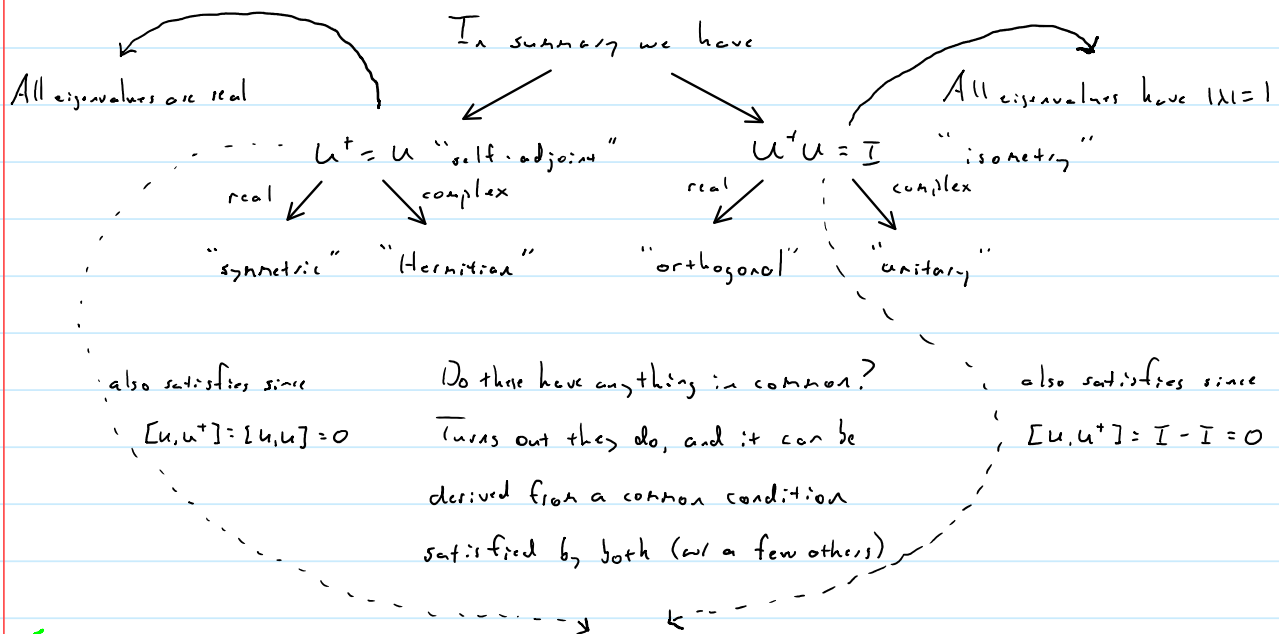 In summary we have
All eigenvalues are real
All eigenvalues have |λ|=1
u† = u "self-adjoint"
u†u = I "isometry"
real complex
real complex
"symmetric" "Hermitian"
"orthogonal" "unitary"
also satisfies since
[u,u†] = [u,u] = 0
Do these have anything in common?
Turns out they do, and it can be
derived from a common condition
satisfied by both (w/ a few others)
also satisfies since
[u,u†] = I - I = 0